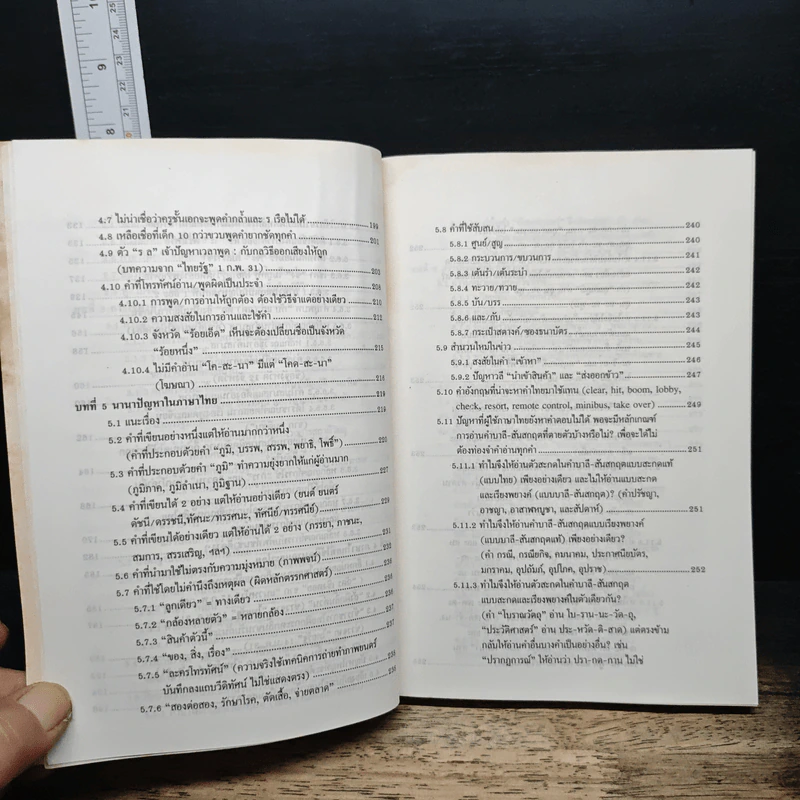 4.7 ไม่น่าเชื่อว่าครูชั้นเอกจะพูดคำกล้ำและ ร เรือไม่ได้ 199
4.8 เหลือเชื่อที่เด็ก 10 กว่าขวบพูดคำยากชัดทุกคำ 201
4.9 ตัว "ร ล" เจ้าปัญหาเวลาพูด : กับกลวิธีออกเสียงให้ถูก
(บทความจาก "ไทยรัฐ" 1 ก.พ. 31) 203
4.10 คำที่โทรทัศน์อ่าน/พูดผิดเป็นประจำ
4.10.1 การพูด/การอ่านให้ถูกต้อง ต้องใช้วิธีจำแต่อย่างเดียว 210
4.10.2 ความสงสัยในการอ่านและใช้คำ 212
4.10.3 จังหวัด "ร้อยเอ็ด" เห็นจะต้องเปลี่ยนชื่อเป็นจังหวัด
"ร้อยหนึ่ง" 215
4.10.4 ไม่มีคำอ่าน "โค-สะ-นา" มีแต่ "โคด-สะ-นา"
(โฆษณา) 216
บทที่ 5 นานาปัญหาในภาษาไทย 219
5.1 แนะเรื่อง 219
5.2 คำที่เขียนอย่างหนึ่งแต่ให้อ่านมากกว่าหนึ่ง
(คำที่ประกอบด้วยคำ "ภูมิ, บรรพ, สรรพ, พยาธิ, โพธิ์") 220
5.3 คำที่ประกอบด้วยคำ "ภูมิ" ทำความยุ่งยากให้แก่ผู้อ่านมาก
(ภูมิภาค, ภูมิลำเนา, ภูมิฐาน) 227
5.4 คำที่เขียนได้ 2 อย่าง แต่ให้อ่านอย่างเดียว (ยนต์ ยนตร์
ดัชนี/ดรรชนี,ทัศนะ/ทรรศนะ, ทัศนีย์/ทรรศนีย์) 229
5.5 คำที่เขียนได้อย่างเดียว แต่ให้อ่านได้ 2 อย่าง (ภรรยา, ภาชนะ,
สมการ, สรรเสริญ, ฯลฯ)
5.6 คำที่นำมาใช้ไม่ตรงกับความมุ่งหมาย (ภาพพจน์)
5.7 คำที่ใช้โดยไม่คำนึงถึงเหตุผล (ผิดหลักตรรกศาสตร์) 236
5.7.1 "ลูกเดียว" = ทางเดียว
5.7.2 "กล้องหลายตัว" = หลายกล้อง
5.7.3 "สินค้าตัวนี้"
5.7.4 "ของ, สิ่ง, เรื่อง"
5.7.5 "ละครโทรทัศน์" (ความจริงใช้เทคนิคการถ่ายทำภาพยนตร์
บันทึกลงแถบวีดิทัศน์ ไม่ใช่แสดงตรง)
5.7.6 "สองต่อสอง, รักษาโรค, ตัดเสื้อ, จ่ายตลาด"
5.8 คำที่ใช้สับสน 240
5.8.1 ศูนย์/สูญ 240
5.8.2 กระบวนการ/ขบวนการ 241
5.8.3 เต้นรำ/เต้นระบำ 241
5.8.4 ทะวาย/ทวาย 242
5.8.5 บัน/บรร 243
5.8.6 และ/กับ 243
5.8.7 กระเป๋าสตางค์/ซองธนาบัตร 244
5.9 สำนวนใหม่ในข่าว 245
5.9.1 สงสัยในคำ "เข้าหา" 246
5.9.2 ปัญหาวลี "นำเข้าสินค้า" และ "ส่งออกข้าว" 247
5.10 คำอังกฤษที่น่าจะหาคำไทยมาใช้แทน (clear, hit, boom, lobby,
check, resort, remote control, minibus, take over) 249
5.11 ปัญหาที่ผู้ใช้ภาษาไทยยังหาคำตอบไม่ได้ พอจะมีหลักเกณฑ์
การอ่านคำบาลี-สันสกฤตที่ตายตัวบ้างหรือไม่? เพื่อจะได้ไม่
ต้องท่องจำคำอ่านทุกคำ
5.11.1 ทำไมจึงให้อ่านตัวสะกดในคำบาลี-สันสกฤตแบบสะกดแท้
(แบบไทย) เพียงอย่างเดียว และไม่ให้อ่านแบบสะกด
และเรียงพยางค์ (แบบบาลี-สันสกฤต)? (คำปรัชญา,
อาชญา, อาสาฬหบูชา, และสัปดาห์) 251
5.11.2 ทำไมจึงให้อ่านคำบาลี-สันสกฤตแบบเรียงพยางค์
(แบบบาลี-สันสกฤตแท้) เพียงอย่างเดียว?
(คำ กรณี, กรณียกิจ, คมนาคม, ประกาศนียบัตร,
มกราคม, อุปถัมภ์, อุปโภค, อุปราช) 252
5.11.3 ทำไมจึงให้อ่านตัวสะกดในคำบาลี-สันสกฤต
แบบสะกดและเรียงพยางค์ในตัวเดียวกัน?
(คำ "โบราณวัตถุ" อ่าน โบ-ราน-นะ-วัด-ถุ,
"ประวัติศาสตร์" อ่าน ประ-หวัด-ติ-สาด) แต่ตรงข้าม
กลับให้อ่านคำอื่นบางคำเป็นอย่างอื่น? เช่น
"ปรากฏการณ์" ให้อ่านว่า ปรา-กด-กาน ไม่ใช่